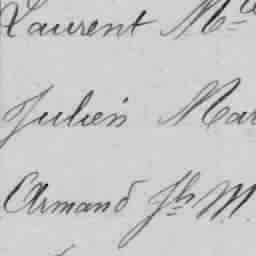 Laurent Mce
Julien Mar
Armand Jh M.